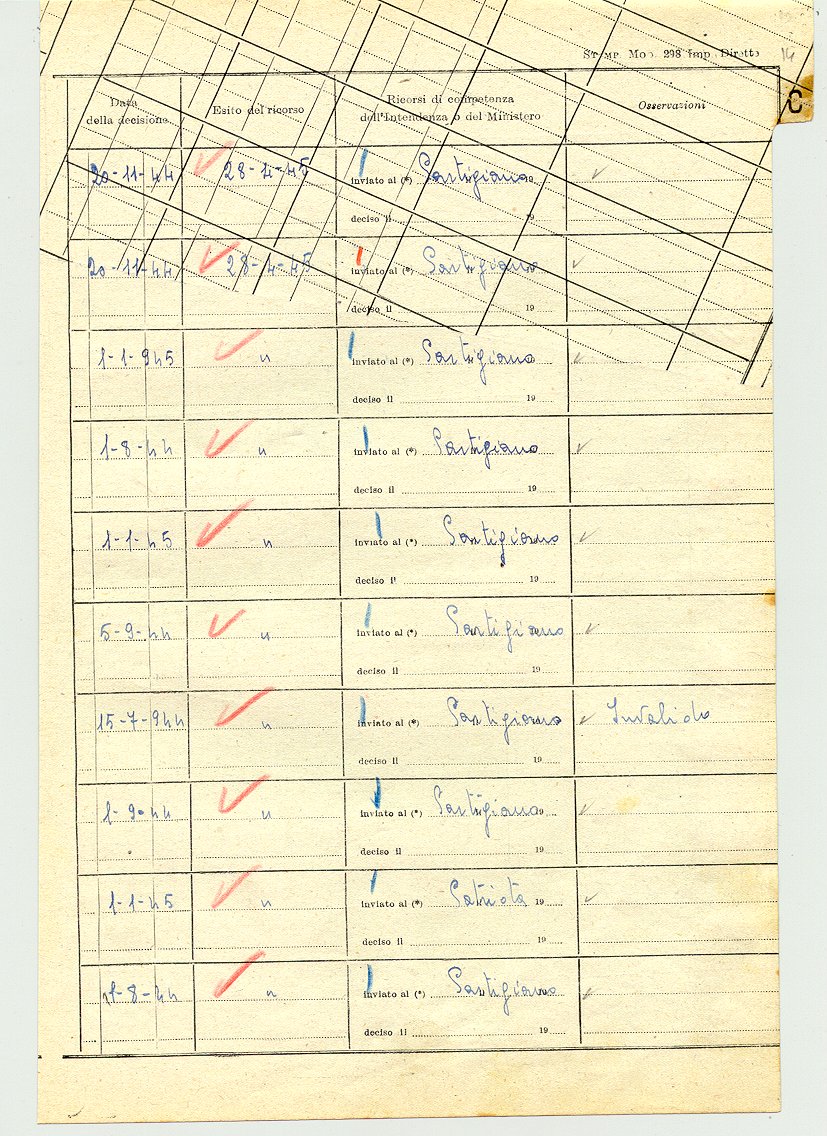 STAMP. MOD. 298 Imp. Dirette 14
C
Data della decisione Esito del ricorso Ricorsi di competenza dell'Intendenza o del Ministero Osservazioni
20-11-44 28-4-45 inviato al (*) Partigiano 19
deciso il 19
20-11-44 28-4-45 inviato al (*) Partigiano
deciso il 19
1-1-945 " inviato al (*) Partigiano
deciso il 19
1-8-44 " inviato al (*) Partigiano
deciso il 19
1-1-45 " inviato al (*) Partigiano
deciso il 19
5-9-44 " inviato al (*) Partigiano
deciso il 19
15-7-944 " inviato al (*) Partigiano Invalido
deciso il 19
1-9-44 " inviato al (*) Partigiano 19
deciso il 19
1-1-45 " inviato al (*) Patriota 19
deciso il 19
1-8-44 " inviato al (*) Partigiano
deciso il 19